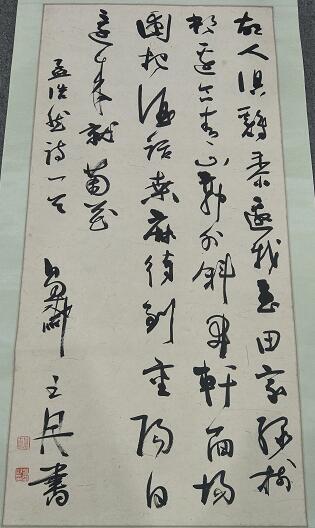 故人俱鷄黍邀我至田家綠樹
村邊合青山郭外斜開軒面場
圃把酒話桑麻待到重陽日
還來就菊花
孟浩然詩一首
王書